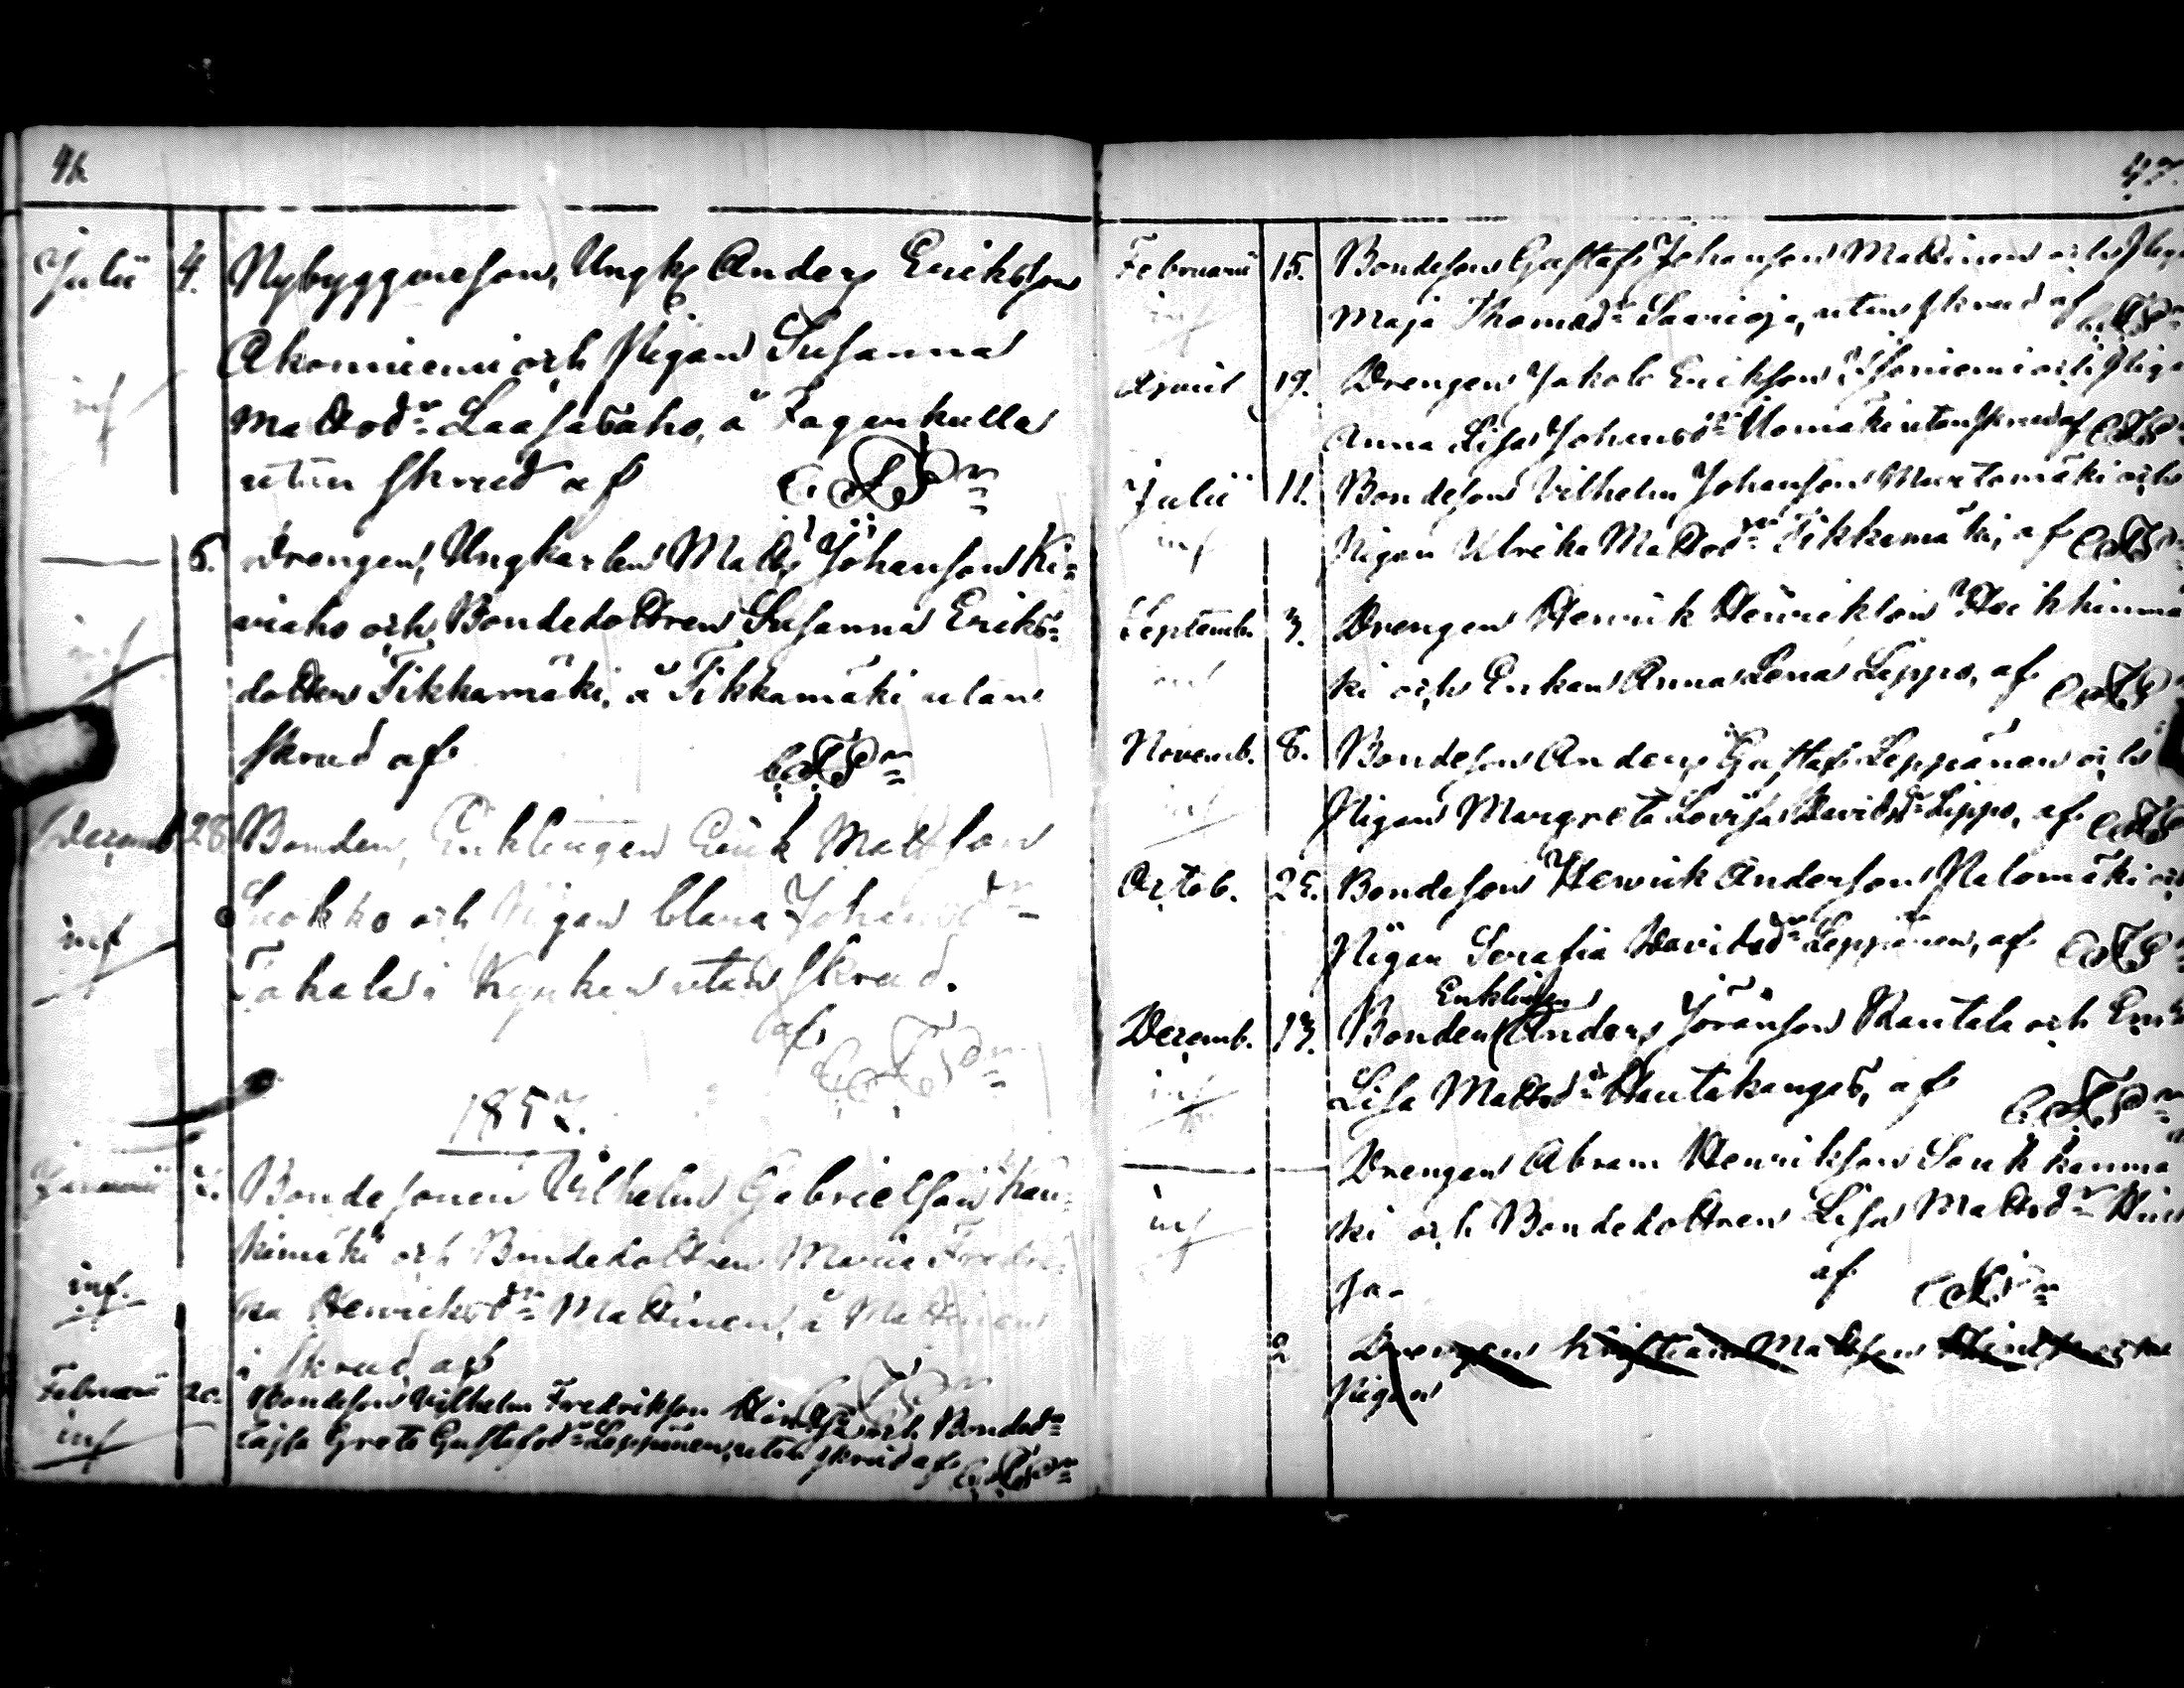 46
Julii 4. Nybyggaresonen, Ungk. Anders Eriksson
Akonniemi och Pigan Susanna
inf
Mattsdr Laasasaho, å Fagerkulla
utan skrud af
— 5. Drengen, Ungkarlen Matts Johansson Ki-
viaho och Bondedottren Susanna Eriks-
inf
dotter Tikkamäki, å Tikkamäki utan
skrud af
Decemb 28 Bonden, Enklingen Erik Mattsson
Suokko och Pigan Clara Johansdr
inf
utan skrud.
af
1857.
Januarii 2. Bondesonen Vilhelm Gabrielsson Kau-
kimäki och Bondedottren Maria Fredri-
inf.
ka Henriksdr Mattinen, å Mattinen
i skrud af
Februarii 20. Bondeson Vilhelm Fredriksson och Bonded
inf
Cajsa Greta Gustafsdr Leppänen, utan skrud af
47.
Februarii 15. Bondeson Gustaf Johansson Mattinen och Piga
inf
Maja Thomasdr Saarioja, utan skrud af
April 19. Drengen Jakob Eriksson och Piga
Anna Lisa Johansdr utan skrud af
Julii 11. Bondeson Vilhelm Johansson Murtomäki och
inf
Pigan Ulrika Mattsdr Tikkamäki, af
Septemb. 3. Drengen Henrik Henriksson
inf
ki och Enkan Anna Lena Lippo, af
Novemb. 8. Bondeson Anders Gustafs Leppänen och
inf
Pigan Margreta Lovisa Davidsdr Lippo, af
Octob. 25. Bondeson Henrik Andersson Palomäki och
Pigan Serafia Davidsdr Leppänen, af
Enklingen
Decemb. 13. Bonden Anders Jöransson Rautala och Enk
inf
Lisa Mattsdr Hautakangas, af
— Drengen Abram Henriksson Soukkanmä
inf
ki och Bondedottren Lisa Mattsdr Hint
sa. af
2 Drengen Kristian Mattsson och
Pigan